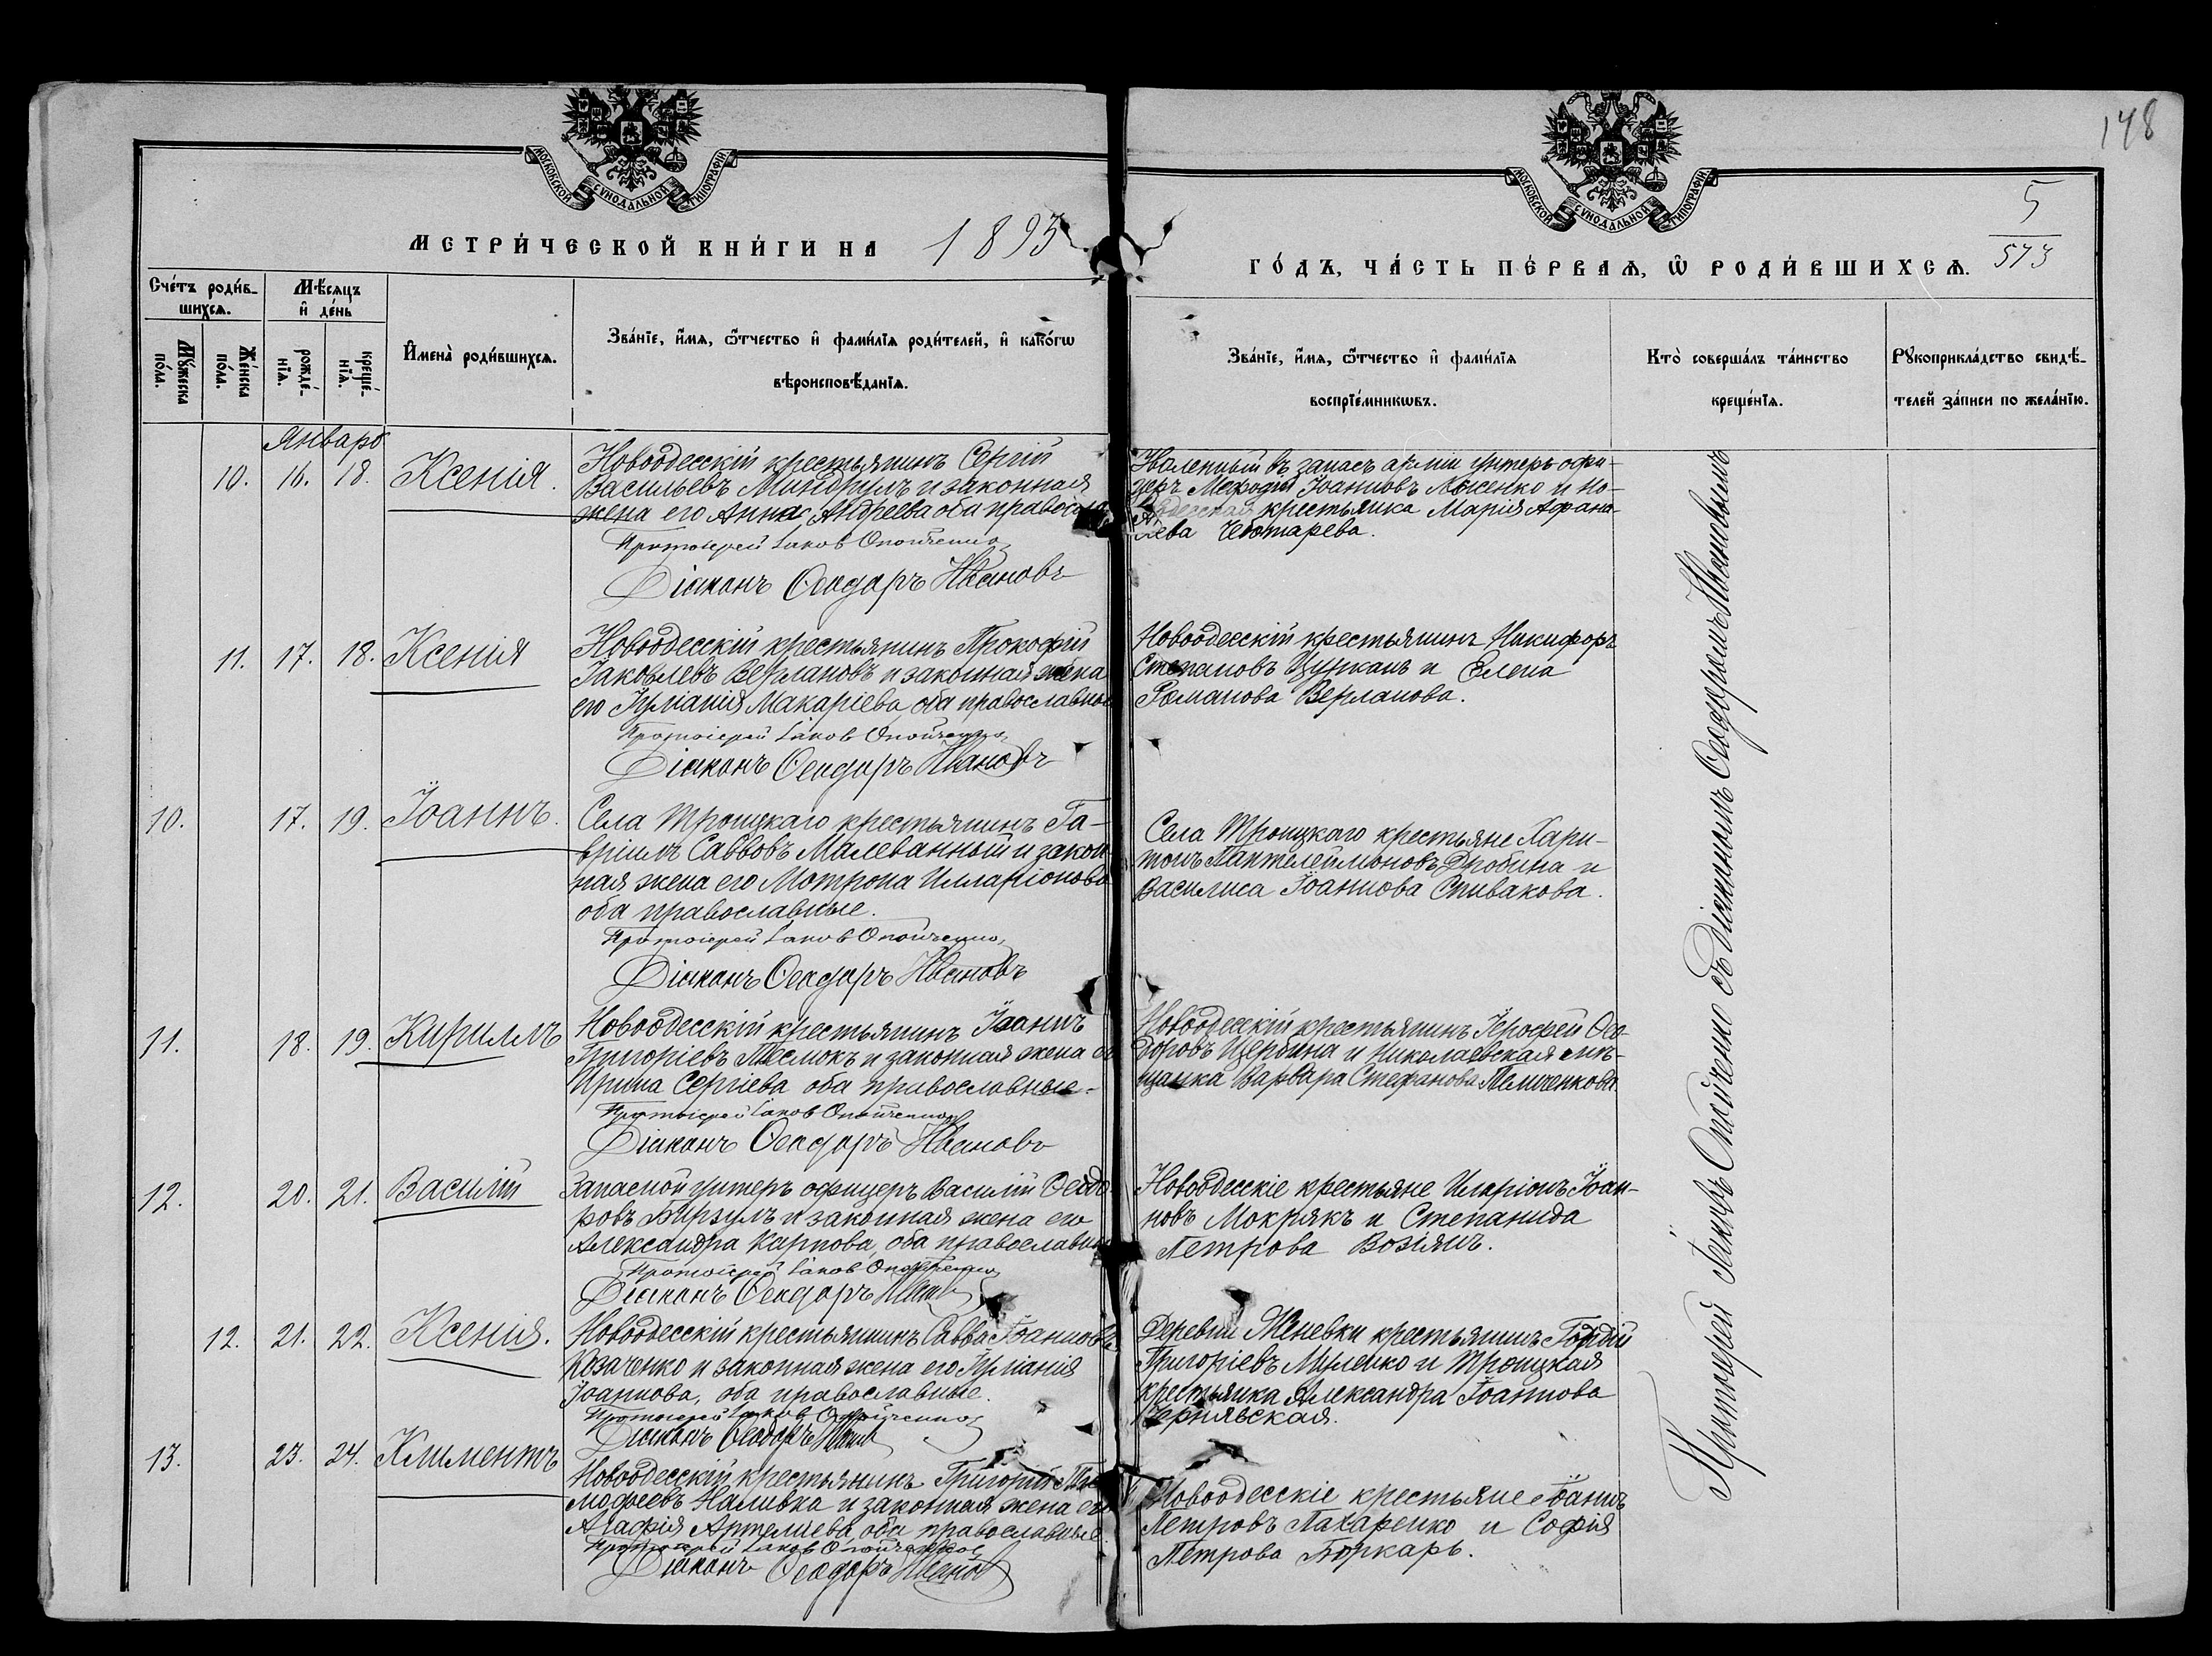 148
5
573
МОСКОВСКОЙ СѴНОДАЛЬНОЙ ТИПОГРАФІИ
МОСКОВСКОЙ СѴНОДАЛЬНОЙ ТИПОГРАФІИ
МЕТРИ́ЧЕСКОЙ КНИ́ГИ НА 1893
ГО́ДЪ, ЧА́СТЬ ПЕ́РВАѦ, Ѽ РОДИ́ВШИХСѦ.
Сче́тъ роди́в-
шихсѧ.
Мꙋ́жеска
по́ла.
Же́нска
по́ла.
Мѣ́сѧцъ
и҆ де́нь
рожде́-
нїѧ.
креще́-
нїѧ.
И҆мена̀ роди́вшихсѧ.
Зва́нїе, и҆́мѧ, ѻ҆́тчество и҆ фами́лїѧ роди́телей, и҆ како́гѡ
вѣроисповѣ́данїѧ.
Зва́нїе, и҆́мѧ, ѻ҆́тчество и҆ фами́лїѧ
воспрїе́мникѡвъ.
Кто̀ соверша́лъ та́инство
креще́нїѧ.
Рꙋкоприкла́дство свидѣ́-
телей за́писи по жела́нїю.
Январь
10. 16. 18. Ксенія.
Новоодесскій крестьянинъ Сергій
Васильевъ Миндрулъ и законная
жена его Анна Андреева оба правосла
Протоіерей Іаков Опойченко
Діаконъ Ѳеодоръ Ивановъ
въ запасъ арміи унтеръ офи-
церъ Меѳодій Іоанновъ Лысенко и но-
крестьянка Марія Аѳана-
сіева Чеботарева.
11. 17. 18. Ксенія
Новоодесскій крестьянинъ Прокофій
Іаковлевъ Верлановъ и законная жена
его Іуліанія Макаріева, оба православные
Протоіерей Іаков Опойченко
Діаконъ Ѳеодоръ Ивановъ
Новоодесскій крестьянинъ Никифоръ
Степановъ Цурканъ и Елена
Романова Верланова.
10. 17. 19. Іоаннъ.
Села Троицкаго крестьянинъ Га-
вріилъ Саввовъ Малеванный и закон
ная жена его Мотрона Илларіонова
оба православные.
Протоіерей Іаков Опойченко
Діаконъ Ѳеодоръ Ивановъ
Села Троицкаго крестьяне Хари-
тонъ Пантелеймоновъ Дробина и
Василиса Іоаннова Спивакова.
11. 18. 19. Кириллъ
Новоодесскій крестьянинъ Іоаннъ
Григоріевъ и законная жена ег
Ирина Сергіева оба православные.
Протоіерей Іаков Опойченко
Діаконъ Ѳеодоръ Ивановъ
Новоодесскій крестьянинъ Іероѳей Ѳео-
доровъ Щербина и Николаевская мѣ-
щанка Варвара Стефанова
12. 20. 21. Василій
Запасной унтеръ офицеръ Василій Ѳеодо
ровъ Бирзулъ и законная жена его
Александра Карпова, оба православн
Протоіерей Іаков Опойченко
Діаконъ Ѳеодоръ Иванов
Новоодесскіе крестьяне Иларіонъ Іоан-
новъ Мокрякъ и Степанида
Петрова Возіянъ.
12. 21. 22. Ксенія.
Новоодесскій крестьянинъ Савва Іоанновъ
Козаченко и законная жена его Іуліанія
Іоаннова, оба православные.
Протоіерей Іаков Опойченко
Діаконъ Ѳеодоръ Иванов
Деревни Женевки крестьянинъ Гордій
Григоріевъ и Троицкая
крестьянка Александра Іоаннова
Чернявская.
13. 23. 24. Климентъ
Новоодесскій крестьянинъ Григорій Ти
моѳеевъ Наливка и законная жена его
Агафія Артеміева оба православные
Протоіерей Іаков Опойченко
Діаконъ Ѳеодоръ Иванов
Новоодесскіе крестьяне Іоаннъ
Петровъ Пахаренко и Софія
Петрова Боркарь.
Протоіерей Іаковъ Опойченко съ діакономъ Ѳеодоромъ Ивановымъ